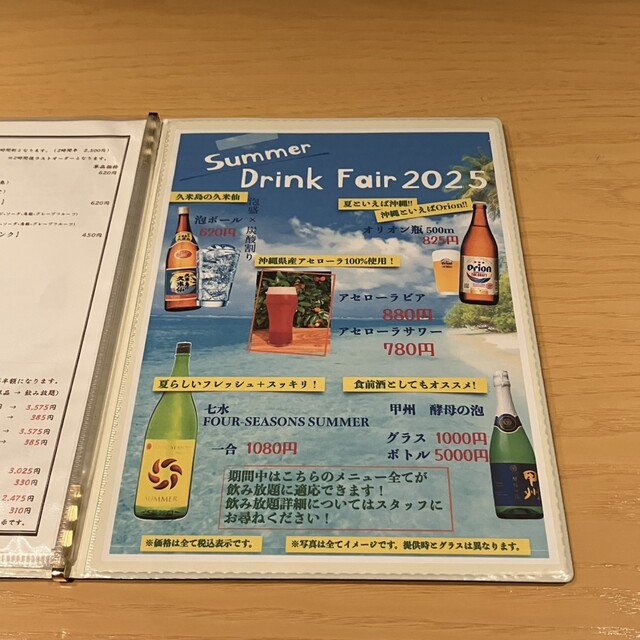 Summer
Drink Fair 2025
久米島の久米仙
泡ボール
620円
泡盛×炭酸割り
夏といえば沖縄!!
沖縄といえばOrion!!
オリオン瓶 500m
825円
Orion
沖縄県産アセローラ100%使用！
アセローラビア
880円
アセローラサワー
780円
夏らしいフレッシュ+スッキリ！
七水
FOUR-SEASONS SUMMER
一合 1080円
SUMMER
食前酒としてもオススメ！
甲州 酵母の泡
グラス 1000円
ボトル 5000円
甲州
期間中はこちらのメニュー全てが
飲み放題に適応できます！
飲み放題詳細についてはスタッフに
お尋ねください！
※価格は全て税込表示です。
※写真は全てイメージです。提供時とグラスは異なります。
(2時間半 2,500円
単品価格
620円
620円
450円
半額になります。
単品 → 飲み放題)
→ 3,575円
→ 385円
→ 3,575円
→ 385円
3,025円
330円
2,475円
310円